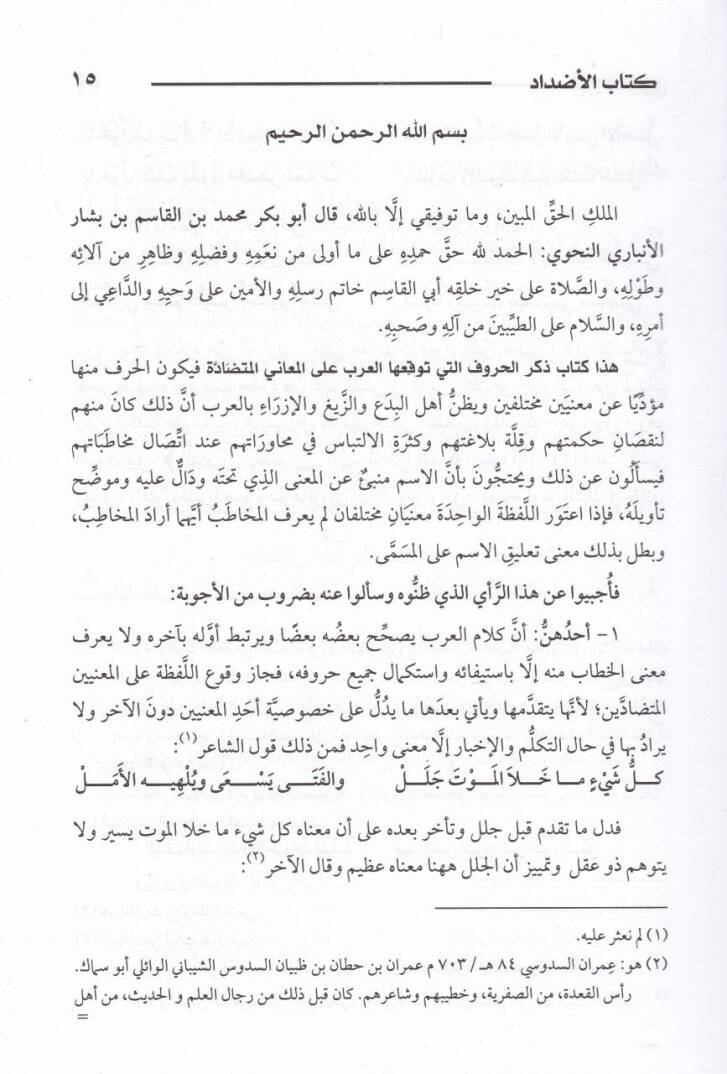 كتاب الأضداد ١٥
بسم الله الرحمن الرحيم
الملكِ الحقِّ المبين، وما توفيقي إلَّا بالله، قال أبو بكر محمد بن القاسم بن بشار
الأنباري النحوي: الحمد لله حقَّ حمدِهِ على ما أولى من نعَمِهِ وفضلِهِ وظاهِرِ من آلائِه
وطَوْلِهِ، والصَّلاة على خير خلقِه أبي القاسم خاتم رسلِهِ والأمين على وَحيِهِ والدَّاعي إلى
أمرِهِ، والسَّلام على الطيِّبينَ من آلِهِ وصَحبِهِ.
هذا كتاب ذكر الحروف التي توقعها العرب على المعاني المتضادّة فيكون الحرف منها
مؤدّيًا عن معنيَين مختلفين ويظنُّ أهل البِدَع والزَّيغ والإزرَاءِ بالعرب أنَّ ذلك كانَ منهم
لنقصَانِ حكمتهم وقِلَّة بلاغتهم وكثرَةِ الالتباس في محاوَراتهم عند اتِّصَال مخاطَباتهم
فيسألُون عن ذلك ويحتجُّونَ بأنَّ الاسم منبئٌ عن المعنى الذِي تحتَه ودَالٌّ عليه وموضِّح
تأويلَهُ، فإذا اعتَوَر اللَّفظةَ الواحِدَةَ معنيَانِ مختلفان لم يعرف المخاطَبُ أيَّهما أرادَ المخاطِبُ،
وبطل بذلك معنى تعليقِ الاسم على المسَمَّى.
فأُجيبوا عن هذا الرَّأي الذي ظنُّوه وسألوا عنه بضروب من الأجوبة:
١- أحدُهنُّ: أنَّ كلام العرب يصحِّح بعضُه بعضًا ويرتبط أوَّله بآخره ولا يعرف
معنى الخطاب منه إلَّا باستيفائه واستكمال جميع حروفه، فجاز وقوع اللَّفظة على المعنيين
المتضادَّين؛ لأنَّها يتقدَّمها ويأتي بعدَها ما يدُلُّ على خصوصيَّة أحَدِ المعنيين دونَ الآخر ولا
يرادُ بها في حال التكلُّم والإخبار إلَّا معنى واحِد فمن ذلك قول الشاعر(١):
كُلُّ شَيْءٍ مـا خَـلاَ المَـوْتَ جَلَـلْ والفَتَـى يَسْـعَى ويُلْهِيـهِ الأَمَـلْ
فدل ما تقدم قبل جلل وتأخر بعده على أن معناه كل شيء ما خلا الموت يسير ولا
يتوهم ذو عقل وتمييز أن الجلل ههنا معناه عظيم وقال الآخر(٢):
(١) لم نعثر عليه.
(٢) هو: عِمران السدوسي ٨٤ هـ/ ٧٠٣ م عمران بن حطان بن ظبيان السدوس الشيباني الوائلي أبو سماك.
رأس القعدة، من الصفرية، وخطيبهم وشاعرهم. كان قبل ذلك من رجال العلم و الحديث، من أهل
=